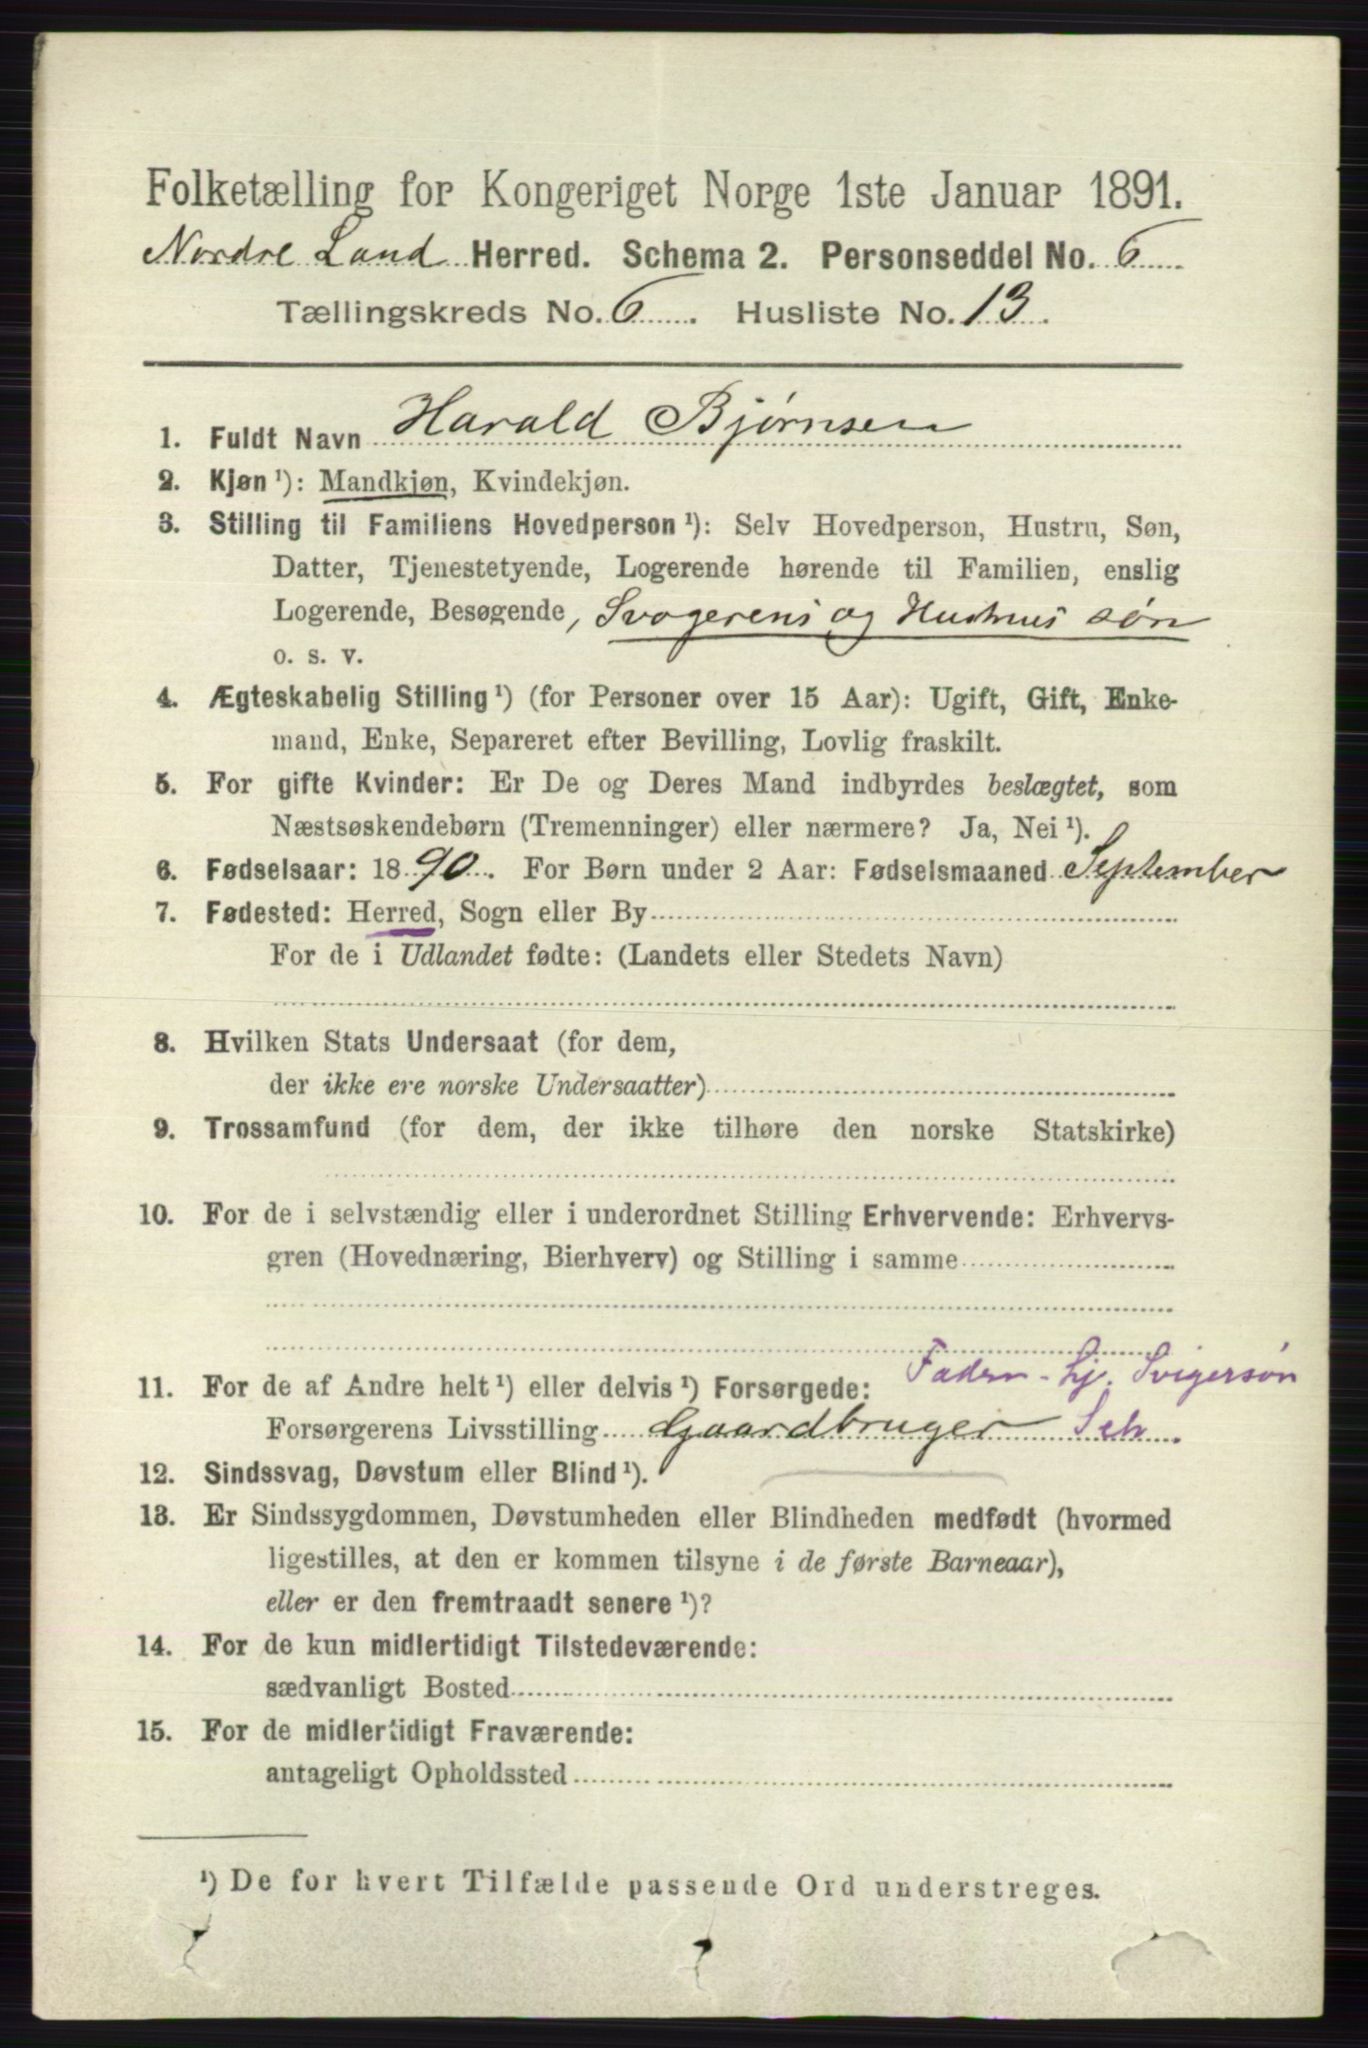 Folketælling for Kongeriget Norge 1ste Januar 1891.
Nordre Land Herred. Schema 2. Personseddel No. 6
Tællingskreds No. 6. Husliste No. 13.
1. Fuldt Navn Harald Bjørnsen
2. Kjøn ¹): Mandkjøn, Kvindekjøn.
3. Stilling til Familiens Hovedperson ¹): Selv Hovedperson, Hustru, Søn,
Datter, Tjenestetyende, Logerende hørende til Familien, enslig
Logerende, Besøgende, Svogerens og Hustrus søn
o. s. v.
4. Ægteskabelig Stilling ¹) (for Personer over 15 Aar): Ugift, Gift, Enke-
mand, Enke, Separeret efter Bevilling, Lovlig fraskilt.
5. For gifte Kvinder: Er De og Deres Mand indbyrdes beslægtet, som
Næstsøskendebørn (Tremenninger) eller nærmere? Ja, Nei ¹).
6. Fødselsaar: 1890. For Børn under 2 Aar: Fødselsmaaned September
7. Fødested: Herred, Sogn eller By
For de i Udlandet fødte: (Landets eller Stedets Navn)
8. Hvilken Stats Undersaat (for dem,
der ikke ere norske Undersaatter)
9. Trossamfund (for dem, der ikke tilhøre den norske Statskirke)
10. For de i selvstændig eller i underordnet Stilling Erhvervende: Erhvervs-
gren (Hovednæring, Bierhverv) og Stilling i samme
Fadern - hj. Svigersøn
11. For de af Andre helt ¹) eller delvis ¹) Forsørgede:
Forsørgerens Livsstilling Gaardbruger Selv.
12. Sindssvag, Døvstum eller Blind ¹).
13. Er Sindssygdommen, Døvstumheden eller Blindheden medfødt (hvormed
ligestilles, at den er kommen tilsyne i de første Barneaar),
eller er den fremtraadt senere ¹)?
14. For de kun midlertidigt Tilstedeværende:
sædvanligt Bosted
15. For de midlertidigt Fraværende:
antageligt Opholdssted
¹) De for hvert Tilfælde passende Ord understreges.